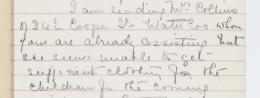 I am sending Mrs Collins
of 242 Cooper St Waterloo whom
you are already assisting but
she seems unable to get
sufficient clothing for the
children for the coming